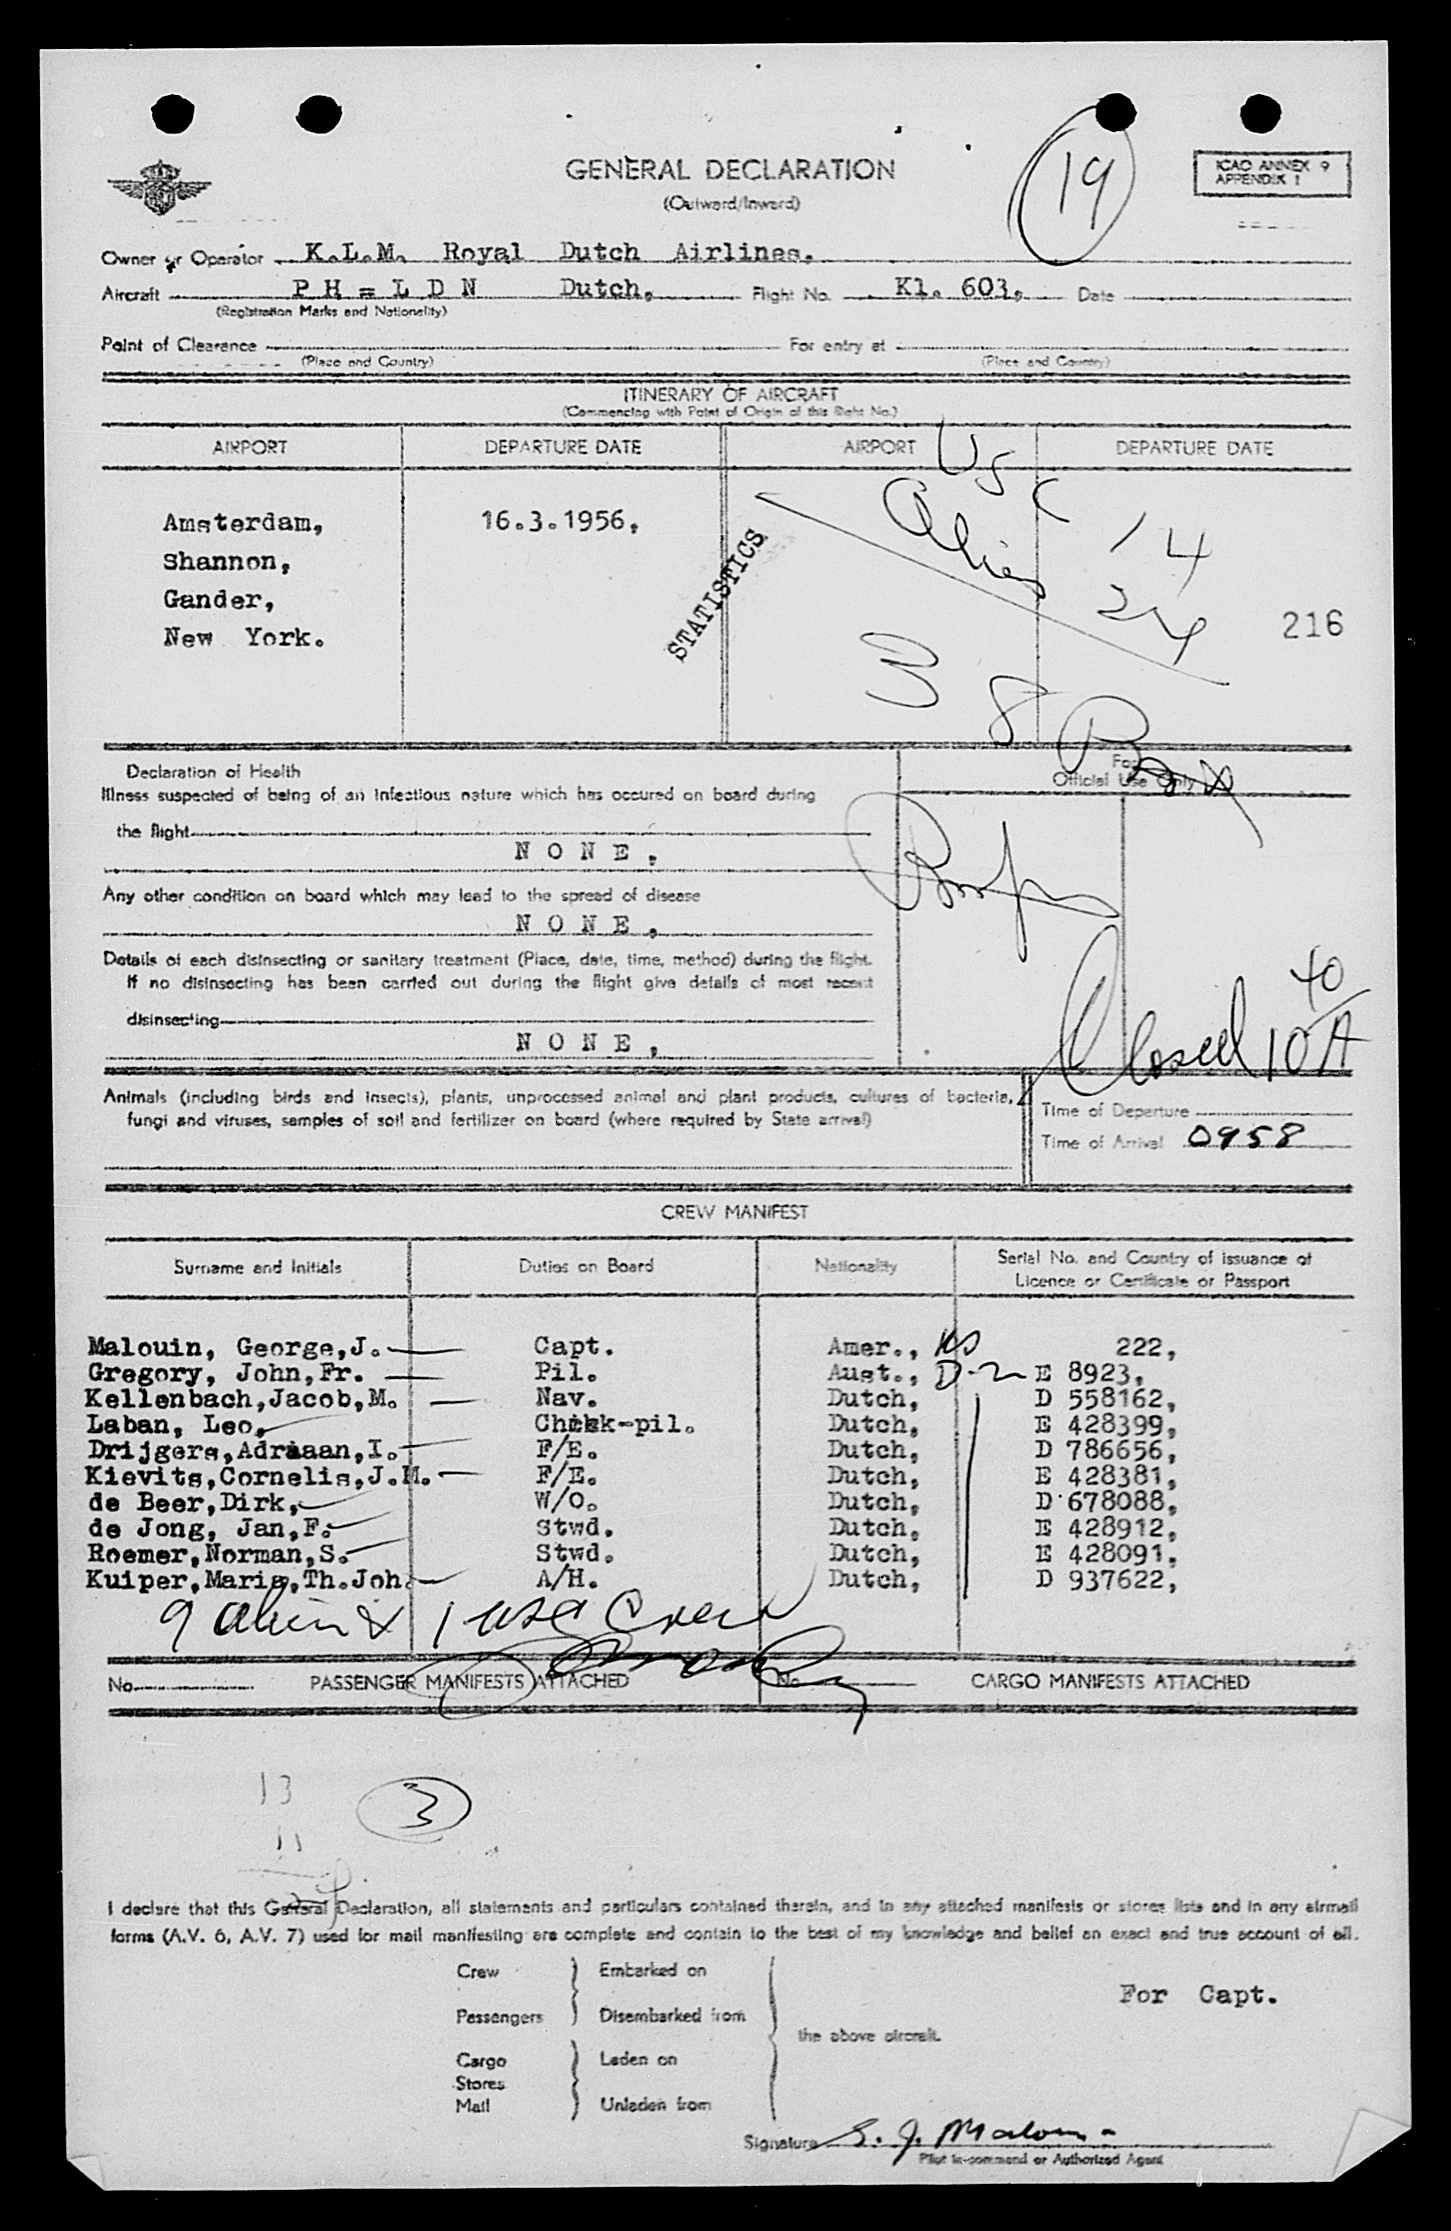 GENERAL DECLARATION
(Outward/Inward)
19
ICAO ANNEX 9
APPENDIX 1
Owner or Operator K.L.M. Royal Dutch Airlines.
Aircraft P H = L D N Dutch, Flight No. Kl. 603, Date
(Registration Marks and Nationality)
Point of Clearance For entry at
(Place and Country) (Place and Country)
ITINERARY OF AIRCRAFT
(Commencing with Point of Origin of this flight No.)
AIRPORT DEPARTURE DATE AIRPORT DEPARTURE DATE
USC 14
Amsterdam, 16.3.1956,
Alien 24
Shannon,
Gander,
New York.
STATISTICS
216
38
For
Official Use Only
Declaration of Health
Illness suspected of being of an infectious nature which has occured on board during
the flight
N O N E,
Any other condition on board which may lead to the spread of disease
N O N E,
Details of each disinsecting or sanitary treatment (Place, date, time, method) during the flight.
If no disinsecting has been carried out during the flight give details of most recent
disinsecting
N O N E,
Closed 10 40 A
Animals (including birds and insects), plants, unprocessed animal and plant products, cultures of bacteria,
fungi and viruses, samples of soil and fertilizer on board (where required by State arrival)
Time of Departure
Time of Arrival 0958
CREW MANIFEST
Surname and Initials Duties on Board Nationality Serial No. and Country of issuance of
Licence or Certificate or Passport
Malouin, George,J. Capt. Amer., 222,
Gregory, John,Fr. Pil. Aust., D-2 E 8923,
Kellenbach,Jacob,M. Nav. Dutch, D 558162,
Laban, Leo, Check-pil. Dutch, E 428399,
Drijgers,Adriaan,I. F/E. Dutch, D 786656,
Kievits,Cornelis,J.M. F/E. Dutch, E 428381,
de Beer,Dirk, W/O. Dutch, D 678088,
de Jong, Jan,F. Stwd. Dutch, E 428912,
Roemer,Norman,S. Stwd. Dutch, E 428091,
Kuiper,Maria,Th.Joh. A/H. Dutch, D 937622,
9 alien & 1 USC Crew
No. PASSENGER MANIFESTS ATTACHED No. CARGO MANIFESTS ATTACHED
13
3
11
I declare that this General Declaration, all statements and particulars contained therein, and in any attached manifests or stores lists and in any airmail
forms (A.V. 6, A.V. 7) used for mail manifesting are complete and contain to the best of my knowledge and belief an exact and true account of all.
Crew Embarked on
For Capt.
Passengers Disembarked from
the above aircraft.
Cargo Laden on
Stores
Mail Unladen from
Signature
Pilot in-command or Authorized Agent